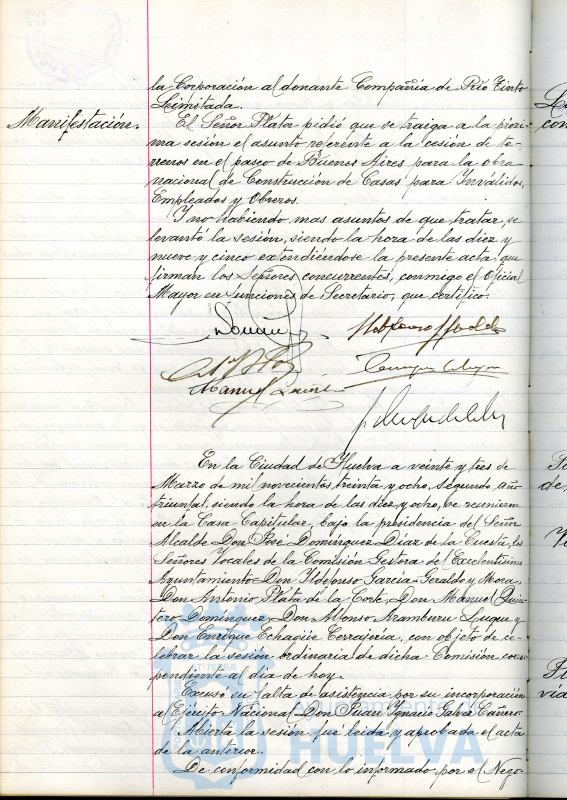 la Corporación al donante Compañia de Rio Tinto
Limitada.
Manifestación.
El Señor Plata pidió que se traiga a la próxi-
ma sesión el asunto referente a la cesión de te-
rrenos en el paseo de Buenos Aires para la obra
nacional de Construcción de Casas para Inválidos,
Empleados y Obreros.
Y no habiendo mas asuntos de que tratar, se
levantó la sesión, siendo la hora de las diez y
nueve y cinco extendiéndose la presente acta, que
firman los Señores concurrentes, conmigo el Oficial
Mayor en funciones de Secretario, que certifico.
Manuel
En la Ciudad de Huelva a veinte y tres de
Marzo de mil novecientos treinta y ocho, segundo año
triunfal, siendo la hora de las diez y ocho, se reunieron
en la Casa Capitular, bajo la presidencia del Señor
Alcalde Don José Dominguez Diaz de la Cuesta, los
Señores Vocales de la Comisión Gestora del Excelentisimo
Ayuntamiento Don Ildefonso Garcia-Geraldo y Mora,
Don Antonio Plata de la Corte, Don Manuel Quin-
tero Dominguez, Don Alfonso Aramburu Luque y
Don Enrique Echagüe Torrajeria, con objeto de ce-
lebrar la sesión ordinaria de dicha Comisión corres-
pondiente al dia de hoy.
Excusó su falta de asistencia por su incorporación
al Ejército Nacional Don Juan Ignacio
Abierta la sesión fue leida y aprobada el acta
de la anterior.
De conformidad con lo informado por el Nego-
Ayuntamiento de
HUELVA